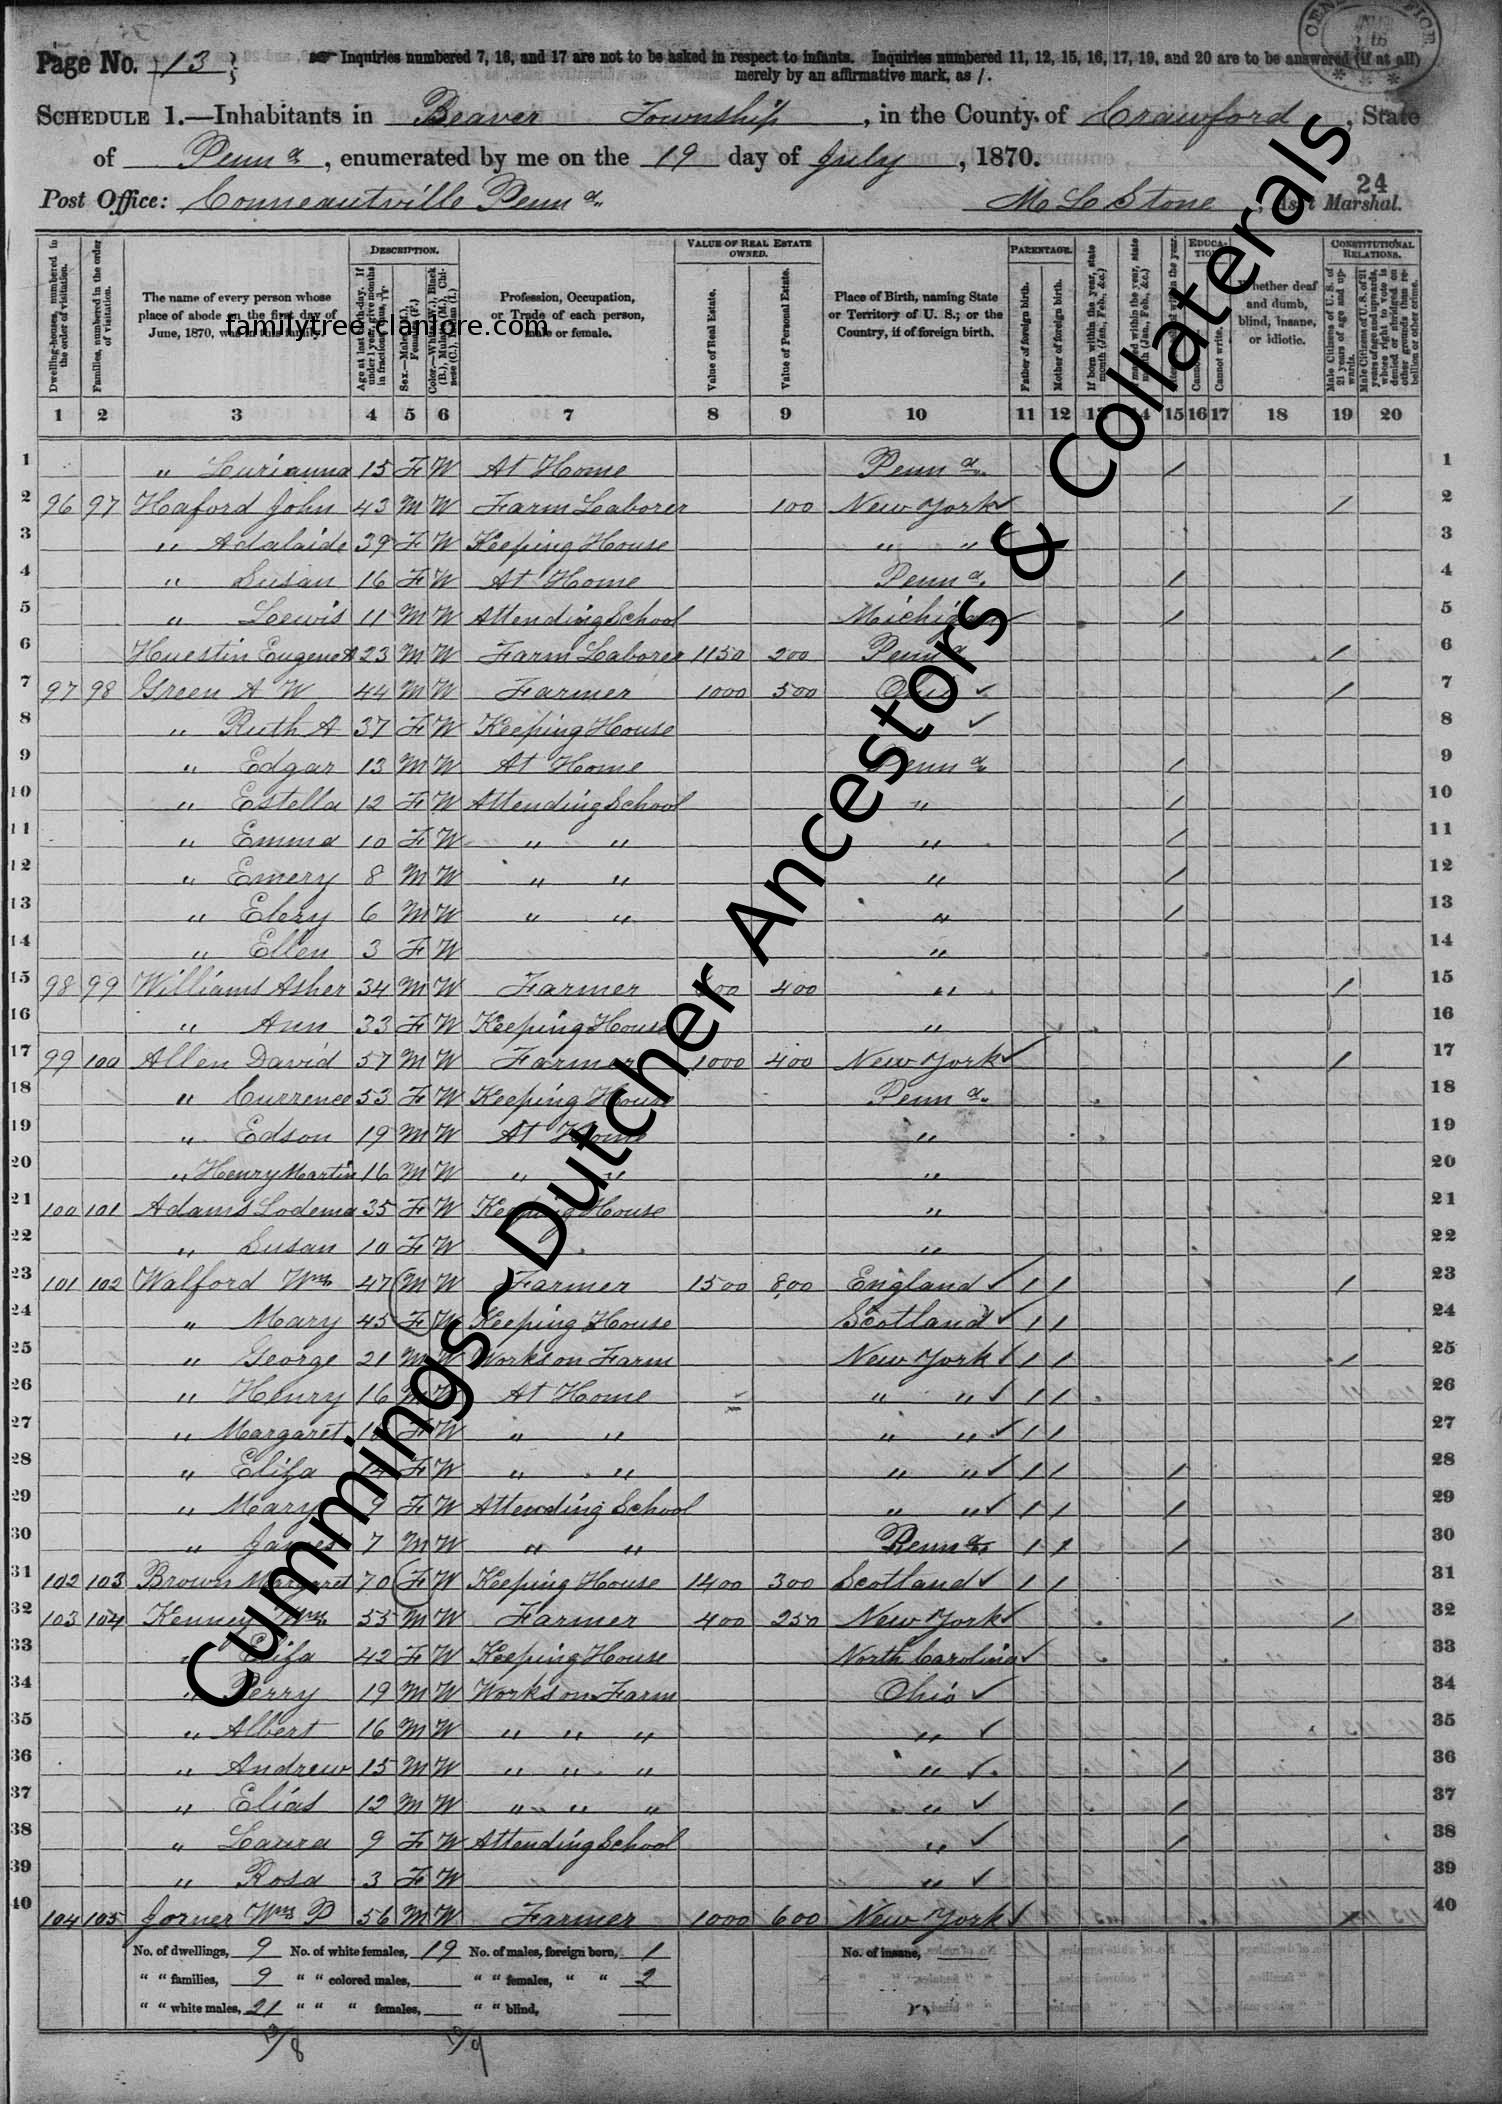 Page No. 13
Inquiries numbered 7, 16, and 17 are not to be asked in respect to infants. Inquiries numbered 11, 12, 15, 16, 17, 19, and 20 are to be answered (if at all)
merely by an affirmative mark, as /.
SCHEDULE 1.—Inhabitants in Beaver Township, in the County of Crawford, State
of Penna, enumerated by me on the 19 day of July, 1870.
24
Post Office: Conneautville Penna M L Stone, Ass't Marshal.
Dwelling-houses, numbered in the order of visitation.
Families, numbered in the order of visitation.
The name of every person whose place of abode on the first day of June, 1870, was in this family.
familytree.clanfore.com
DESCRIPTION.
Profession, Occupation, or Trade of each person, male or female.
VALUE OF REAL ESTATE OWNED.
Value of Real Estate.
Value of Personal Estate.
Place of Birth, naming State or Territory of U. S.; or the Country, if of foreign birth.
PARENTAGE.
Father of foreign birth.
Mother of foreign birth.
Cannot write.
Whether deaf and dumb, blind, insane, or idiotic.
CONSTITUTIONAL RELATIONS.
1 2 3 4 5 6 7 8 9 10 11 12 13 14 15 16 17 18 19 20
1 " Lurianna 15 F W At Home Penna / 1
2 96 97 Haford John 43 M W Farm Laborer 100 New York ✓ / 2
3 " Adalaide 39 F W Keeping House " " 3
4 " Susan 16 F W At Home Penna / 4
5 " Lewis 11 M W Attending School Michigan ✓ / 5
6 Huestin Eugene A 23 M W Farm Laborer 1150 200 Penna / 6
7 97 98 Green A W 44 M W Farmer 1000 500 Ohio ✓ / 7
8 " Ruth A 37 F W Keeping House ✓ 8
9 " Edgar 13 M W At Home Penna / 9
10 " Estella 12 F W Attending School " / 10
11 " Emma 10 F W " " " / 11
12 " Emery 8 M W " " " / 12
13 " Elery 6 M W " " " / 13
14 " Ellen 3 F W " 14
15 98 99 Williams Asher 34 M W Farmer 400 " / 15
16 " Ann 33 F W Keeping House " 16
17 99 100 Allen David 57 M W Farmer 1000 400 New York ✓ / 17
18 " Currence 53 F W Keeping House Penna 18
19 " Edson 19 M W At Home " 19
20 " Henry Martin 16 M W " " " 20
21 100 101 Adams Lodema 35 F W Keeping House " 21
22 " Susan 10 F W " 22
23 101 102 Walford Wm 47 M W Farmer 1500 800 England ✓ / / / 23
24 " Mary 45 F W Keeping House Scotland ✓ / / 24
25 " George 21 M W Works on Farm New York ✓ / / / 25
26 " Henry 16 M W At Home " " ✓ / / 26
27 " Margaret F W " " " " ✓ / / 27
28 " Eliza 14 F W " " " " ✓ / / / 28
29 " Mary 9 F W Attending School " " ✓ / / / 29
30 " James 7 M W " " Penna / / / 30
31 102 103 Brown Margaret 70 F W Keeping House 1400 300 Scotland ✓ / / 31
32 103 104 Kenney Wm 55 M W Farmer 400 250 New York ✓ / 32
33 " Eliza 42 F W Keeping House North Carolina ✓ 33
34 " Perry 19 M W Works on Farm Ohio ✓ 34
35 " Albert 16 M W " " " " ✓ 35
36 " Andrew 15 M W " " " " ✓ / 36
37 " Elias 12 M W " " " " ✓ / 37
38 " Laura 9 F W Attending School " ✓ / 38
39 " Rosa 3 F W " ✓ 39
40 104 105 Jorner Wm P 56 M W Farmer 1000 600 New York ✓ 40
No. of dwellings, 9 No. of white females, 19 No. of males, foreign born, 1 No. of insane,
" " families, 9 " " colored males, " " females, " " 2
" " white males, 21 " " " females, " " blind,
Cummings~Dutcher Ancestors & Collaterals